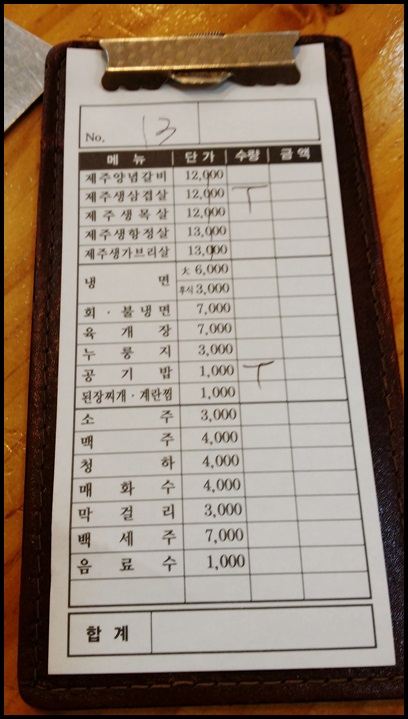 No. 13
메 뉴 단 가 수량 금 액
제주양념갈비 12,000
제주생삼겹살 12,000 T
제 주 생 목 살 12,000
제주생항정살 13,000
제주생가브리살 13,000
냉 면 大 6,000
후식 3,000
회 · 불 냉 면 7,000
육 개 장 7,000
누 룽 지 3,000
공 기 밥 1,000 T
된장찌개 · 계란찜 1,000
소 주 3,000
맥 주 4,000
청 하 4,000
매 화 수 4,000
막 걸 리 3,000
백 세 주 7,000
음 료 수 1,000
합 계